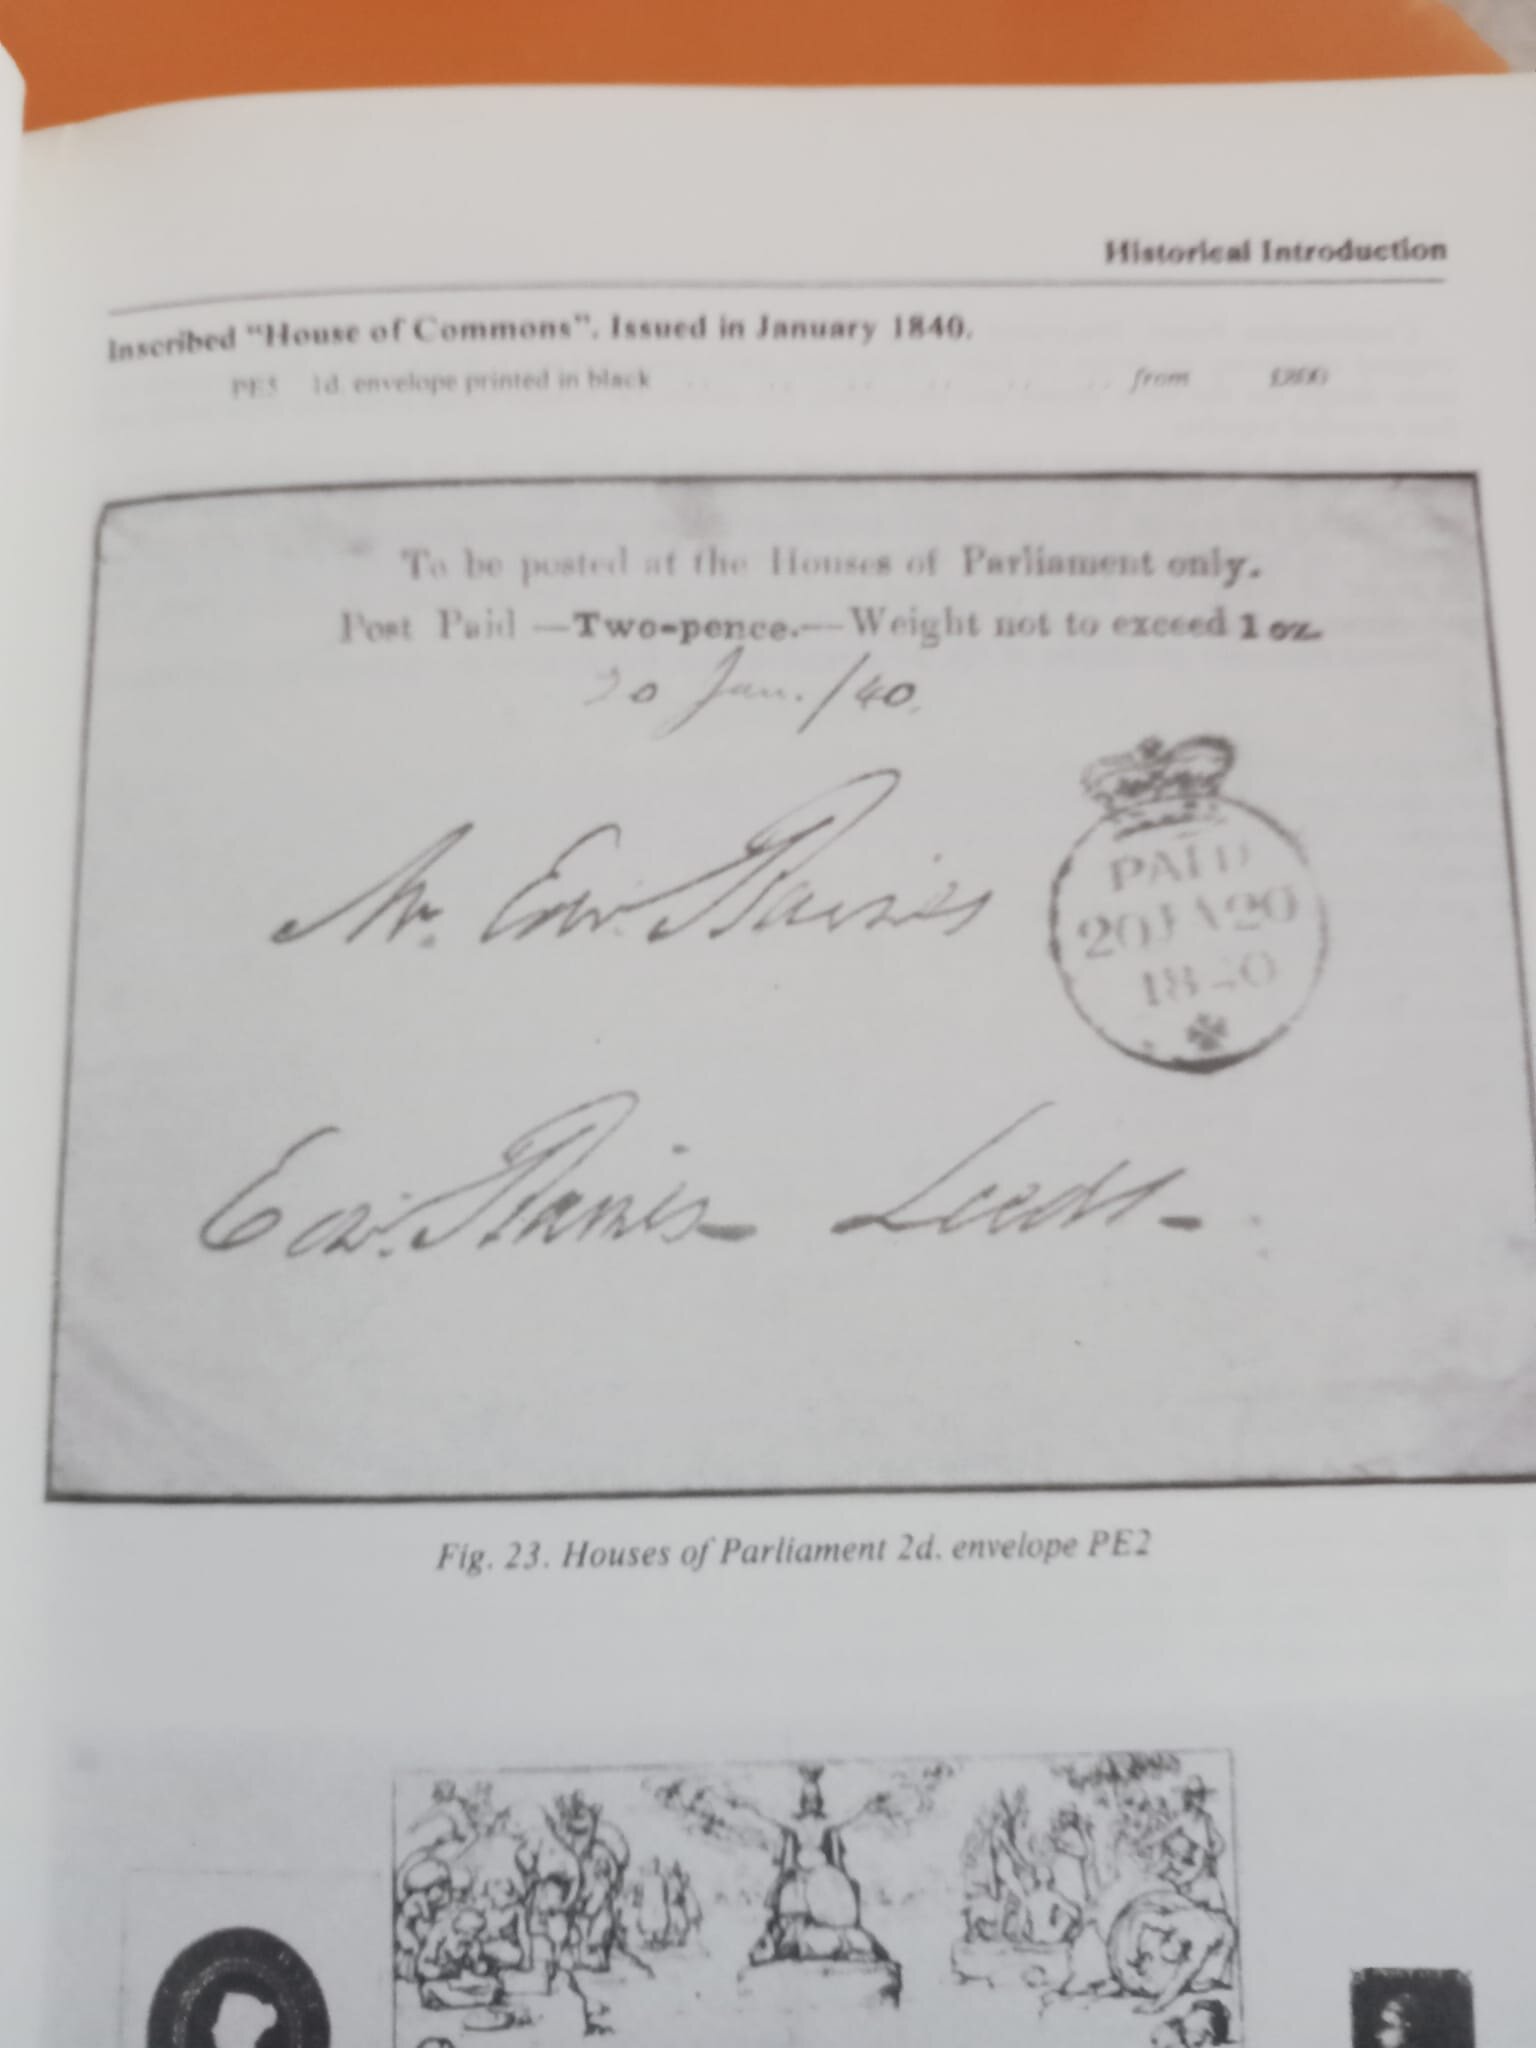 Historical Introduction
Inscribed "House of Commons". Issued in January 1840.
PE5 1d. envelope printed in black .. .. .. .. .. .. from
To be posted at the Houses of Parliament only.
Post Paid —Two-pence.—Weight not to exceed 1 oz.
20 Jan./40.
Mr. Edw. Baines
PAID
20 JA 20
1840
Edw. Baines Leeds
Fig. 23. Houses of Parliament 2d. envelope PE2